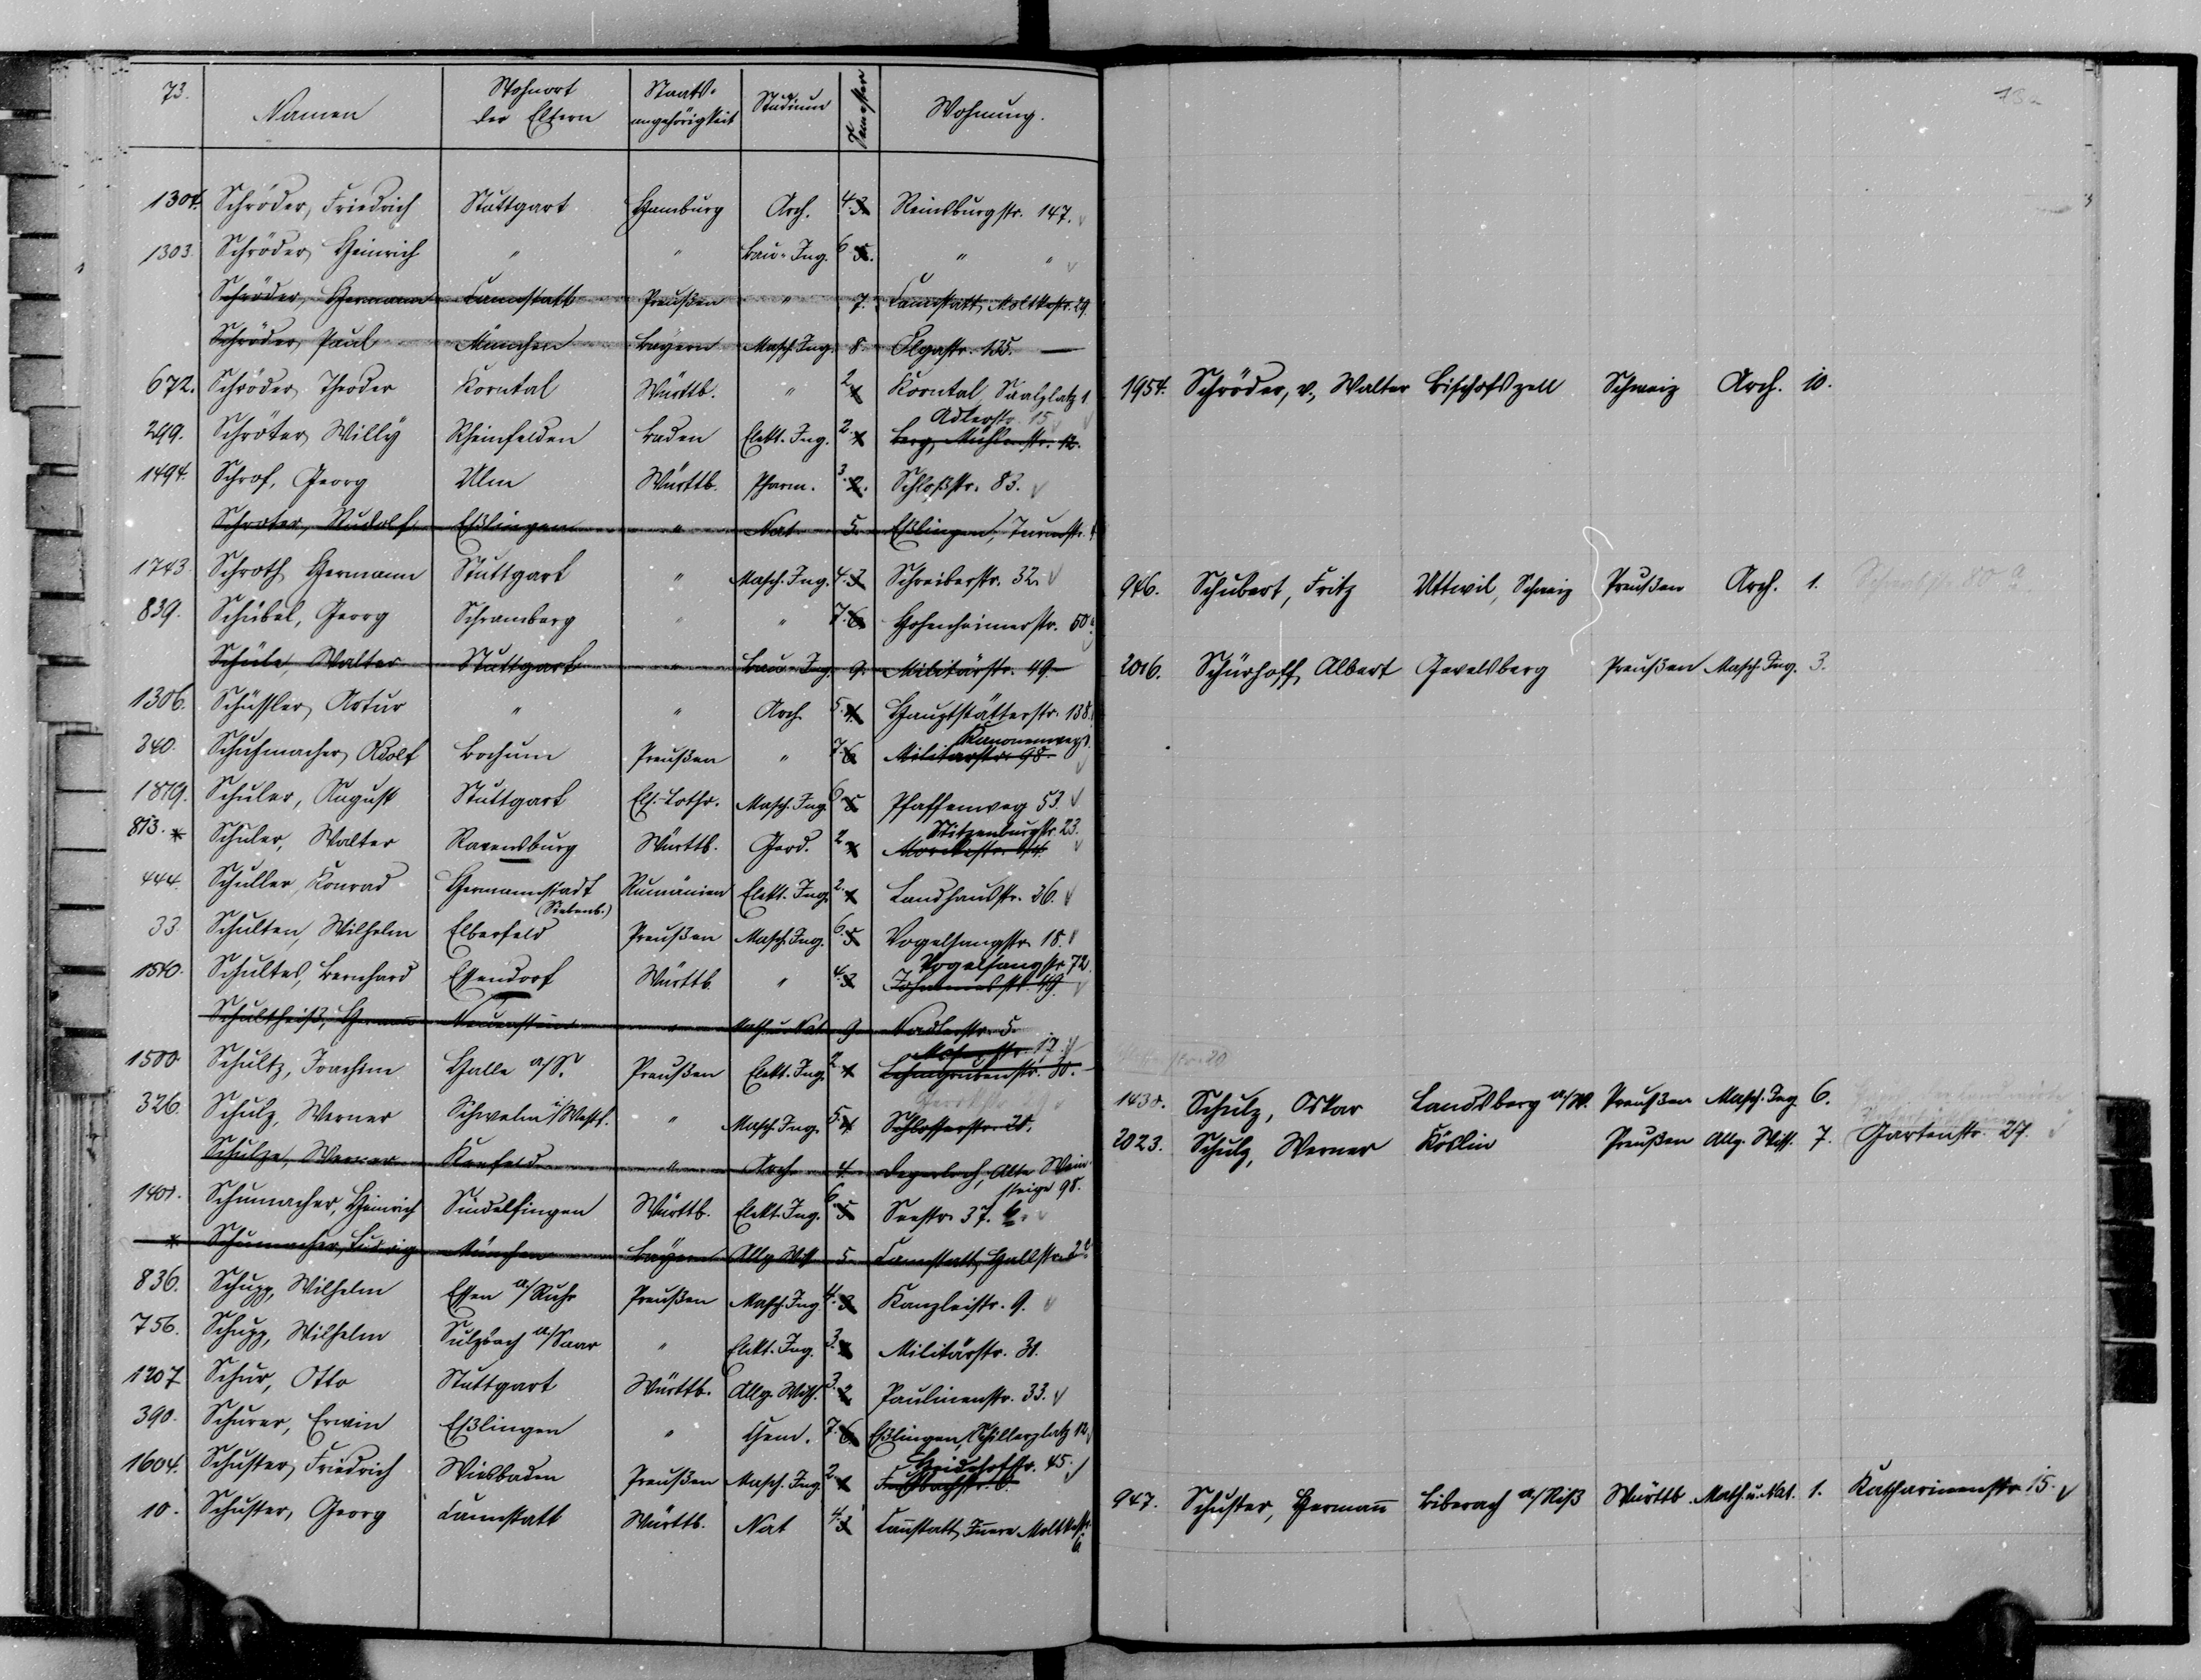 73.
Namen
Wohnort der Eltern
Staats-angehörigkeit
Studium
Semester
Wohnung.
1304. Schröder, Friedrich Stuttgart Hamburg Arch. 4. 3. Reinsburgstr. 147.
1303. Schröder, Heinrich " " Bau-Ing. 6 5. " "
Schröder, Hermann Cannstatt Preußen " 7. Cannstatt, Moltkestr. 29.
Schröder, Paul München Bayern Masch. Ing. 8. Olgastr. 135.
672. Schröder, Theodor Korntal Württb. " 2 1 Korntal, Saalplatz 1
Adlerstr. 15
299. Schröter, Willy Rheinfelden Baden Elekt. Ing. 2. 1 Berg, Mühlenstr. 12.
1494. Schrof, Georg Ulm Württb. Pharm. 3. 2. Schloßstr. 83.
Schroter, Rudolf Eßlingen " Nat 5. Eßlingen, Turmstr.
1743. Schroth, Hermann Stuttgart " Masch. Ing. 4. 3 Schreiberstr. 32.
839. Schübel, Georg Schramberg " " 7. 6. Hohenheimerstr. 50a
Schüle, Walter Stuttgart " Bau-Ing. 9. Militärstr. 49
1306. Schüssler, Artur " " Arch. 5. 4. Hauptstätterstr. 138.
Kanonenweg
340. Schuhmacher, Adolf Bochum Preußen " 7. 6 Militärstr. 98.
1819. Schuler, August Stuttgart Els.-Lothr. Masch. Ing. 6 5 Pfaffenweg 53.
Stitzenburgstr. 23.
813. * Schuler, Walter Ravensburg Württb. Geod. 2 1
444. Schuller, Konrad Hermannstadt Rumänien Elekt. Ing. 2. 1 Landhausstr. 36.
(Siebenb.)
33. Schulten, Wilhelm Elberfeld Preußen Masch. Ing. 6. 5 Vogelsangstr. 18.
Vogelsangstr. 72.
1540. Schultes, Bernhard Essendorf Württb. " 4. 3 Johannesstr. 49.
Schultheiß, Hermann Neuenstein " Math. u. Nat. 9 Nadlerstr. 5.
Moserstr. 17.
1500 Schultz, Joachim Halle a/S. Preußen Elekt. Ing. 2 1 Lehmgrubenstr. 30.
326. Schulz, Werner Schwelm i/Westf. " Masch. Ing. 5. 4 Schlosserstr. 28.
Schulze, Werner Krefeld " Arch 4. Degerloch, Alte Wein-
steige 98.
1401. Schumacher, Heinrich Sindelfingen Württb. Elekt. Ing. 6 5 Seestr. 37.
* Schumacher, Ludwig München Bayern Allg. Wiss 5. Cannstatt, Hallstr.
836. Schupp, Wilhelm Essen a/Ruhr Preußen Masch. Ing. 4. 3 Kanzleistr. 9.
756. Schupp, Wilhelm Sulzbach a/Saar " Elekt. Ing. 3. 2 Militärstr. 31.
1207. Schur, Otto Stuttgart Württb. Allg. Wiss. 3. 2 Paulinenstr. 33.
390. Schurer, Erwin Eßlingen " Chem. 7. 6 Eßlingen, Schillerplatz 12
Heidehofstr. 45.
1604. Schuster, Friedrich Wiesbaden Preußen Masch. Ing. 2 1
10. Schuster, Georg Cannstatt Württb. Nat 4. 3 Cannstatt, Innere Moltkestr.
6.
73a
1954. Schröder, v., Walter Bischofszell Schweiz Arch. 10.
946. Schubert, Fritz Uttwil, Schweiz Preußen Arch. 1.
2016. Schürhoff, Albert Gevelsberg Preußen Masch. Ing. 3.
1430. Schulz, Oskar Landsberg a/W. Preußen Masch. Ing. 6.
2023. Schulz, Werner Köslin Preußen Allg. Wiss. 7. Gartenstr. 27.
947. Schuster, Hermann Biberach a/Riß Württb. Math. u. Nat. 1. Katharinenstr. 15.